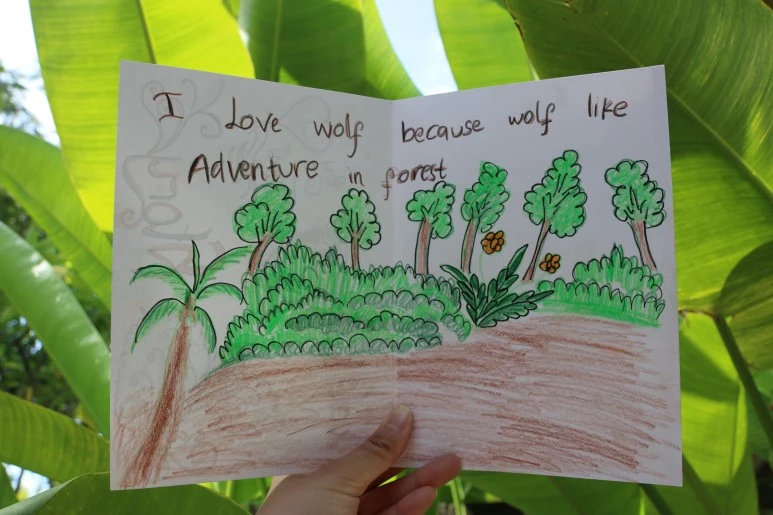 I Love wolf because wolf like
Adventure in forest